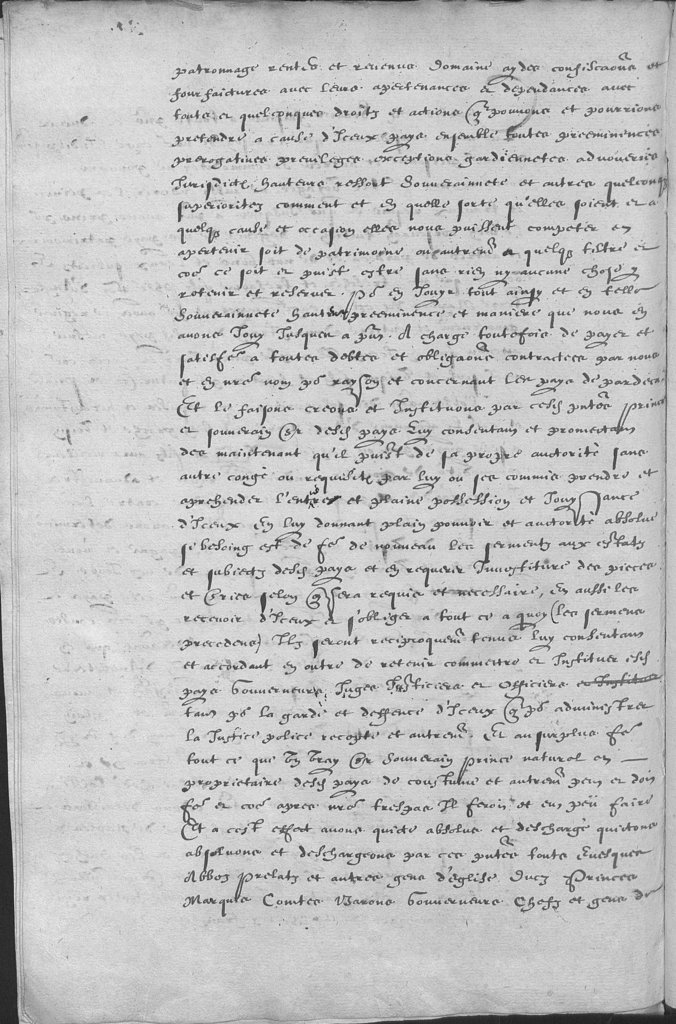 patronnage rentes et revenus domaine aydes confiscaõns et
fourfaictures avec leurs apertenances et dependances avec
touts et quelconques droitz et actions q̃ pouuons et pourrions
pretendre a cause d'Iceux pays ensemble toutes preeminences
prerogatiues preuileges exceptions gardiennetes aduoueries
Jurisdictõ hauteurs ressort souuerainnete et autres quelconqȝ
superioritez comment et en quelle sorte qu'elles soient et a
quelqȝ cause et occasion elles nous puissent competer en
apertenir soit de patrimoine ou autremt̃ a quelqȝ tiltre et
coẽ ce soit et puist estre sans rien ny aucune chose y
retenir et reseruer. Põ en Jouyr tout ainsy et en telle
souuerainnete hauteur preeminence et maniere que nous en
auons Jouy Jusques a pñt. A charge touteffois de payer et
satisfẽ a toutes debtes et obligaõns contractees par nous
et en nr̃e nom põ rayson et concernant les pays de pardeca
Et le faisons creons et Instituons par cesd. pñtes Prince
et souuerain Sr desd. pays Luy consentans et promectans
des maintenant qu'il puist de sa propre auctorite sans
autre congé ou requisitõ par luy ou ses commis prendre et
aprehender l'entiere et plaine possession et Jouyssance
d'Iceux En luy donnant plain pouuoir et auctorite absolue
se besoing est de fẽ de nouueau les serments aux estatz
et subiectz desd. pays et en requerir Inuestiture des pieces
et Sries selon q̃ sera requis et necessaire, En ausse les
receuoir d'Iceux et s'obliger a tout ce a quoy (les sermens
precedens) Ilz seront reciproquemt̃ tenus luy consentans
et accordant en outre de retenir commettre et Instituer esd.
pays Gouuerneurs, Juges Justiciers et Officiers et Instituer
tant põ la garde et deffence d'Iceux q̃ põ administrer
la Justice police recepte et autremt̃. Et au surplus fẽ
tout ce que Un vray Sr souuerain prince naturel en
proprietaire desd. pays de coustume et autremt̃ peut et doit
fẽ et coẽ apres nr̃e trespas Il feroit et eut peü faire
Et a cest effect auons quicté absolus et deschargé quictons
absoluons et deschargeons par ces pñtes touts Euesques
Abbez Prelatz et autres gens d'eglise. Ducz Princes
Marquis Comtes Barons Gouuerneurs Chefz et gens de